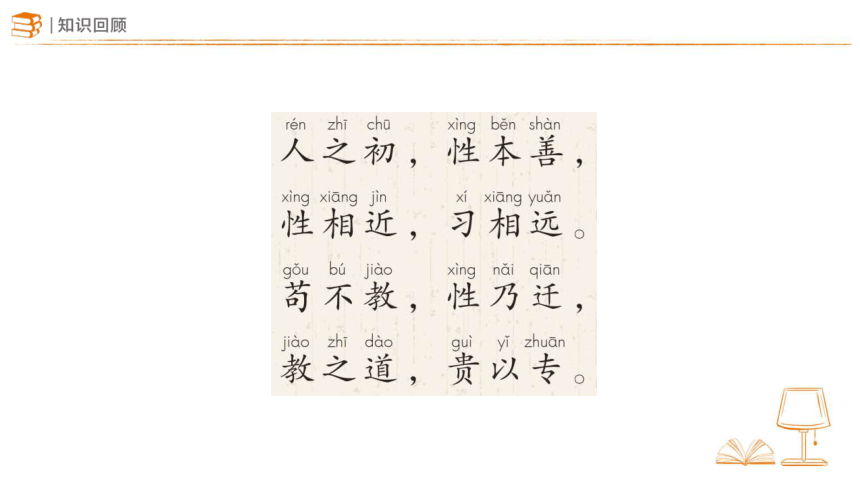 知识回顾
rén zhī chū xìng běn shàn
人之初，性本善，
xìng xiāng jìn xí xiāng yuǎn
性相近，习相远。
gǒu bú jiào xìng nǎi qiān
苟不教，性乃迁，
jiào zhī dào guì yǐ zhuān
教之道，贵以专。